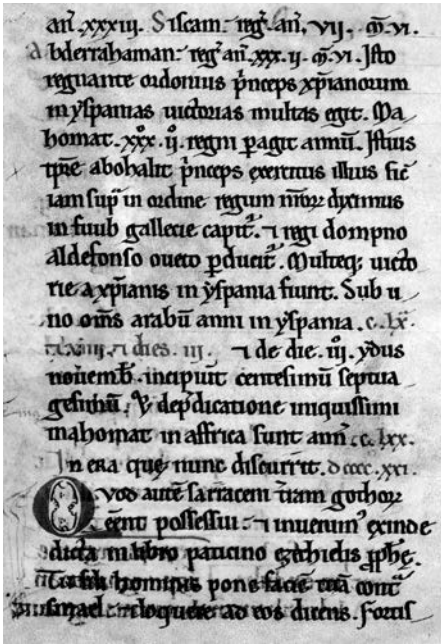 an̄ .xxxiii. Siscam: reḡ. an̄. vii, m̄.vi.
Abderrahaman: reḡ an̄ .xxx.ii. m̄.vi. Isto
regnante ordonius p̄nceps xp̄ianorum
in yspanias uictorias multas egit. Ma
homat .xxx.iiº. regni ꝑagit annū. Istius
tp̄re abohalit p̄nceps exercitus illius sic̄
iam sup̄ in ordine regum dixim̄us
in gallecie capit̄. ⁊ regi dompno
aldefonso oueto ꝑducit̄. Multeq; uicto
rie a xp̄ianis in yspania fiunt. Sub u
no om̄s arabū anni in yspania .c.lx̄.
⁊ dies. iii. ⁊ de die .iiiº. ydus
nouemb̄. incipiūt centesimū septua
gesimū. dep̄dicatione iniquissimi
mahomat in affrica sunt ann̄ .c.lxx.
In era que nunc discurrit. dcccc.xxi.
Quod autē sarraceni t̄ram gothoꝝ
possessuri: ⁊ inuenim᷒ exinde
dicta in libro paticino ezechielis ꝓphē.
fili hominis pone faciē tuā cont̄
ismael ⁊ loquere ad eos dicens. Fortis